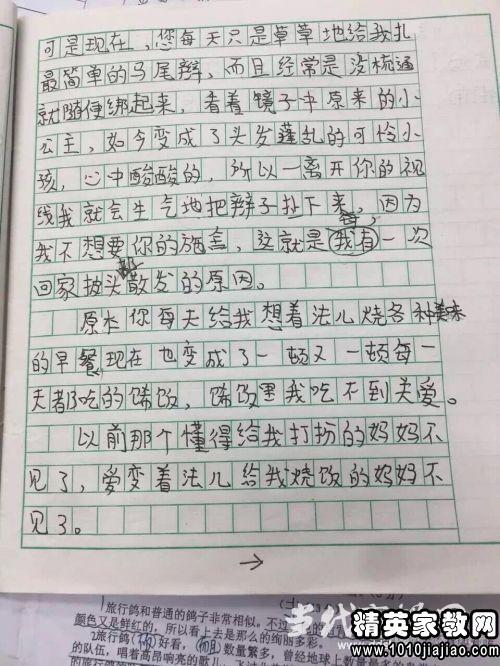 可是现在，您每天只是草草地给我扎
最简单的马尾辫，而且经常是没梳通
就随便绑起来，看着镜子中原来的小
公主，如今变成了头发蓬乱的可怜小
孩，心中酸酸的，所以一离开你的视
线我就会生气地把辫子扯下来，因为
我不想要你的施舍，这就是我有一次
回家披头散发的原因。
原本你每天给我想着法儿烧各种美味
的早餐现在也变成了一顿又一顿每一
天都吃的饭，饭里我吃不到关爱。
以前那个懂得给我打扮的妈妈不
见了，爱变着法儿给我烧饭的妈妈不
见了。
→
旅行鸽和普通的鸽子非常相似。不过
颜色又是鲜红的，所以看上去是那么的绚丽多彩。
2旅行鸽好看，数量繁多，曾经地球上
的队伍，唱着高昂响亮的歌儿，
当代
精英家教网
www.1010jiajiao.com